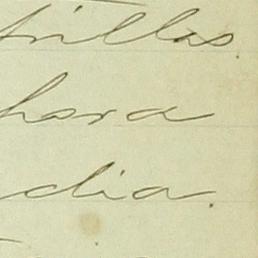 trillas.
hora
dia.